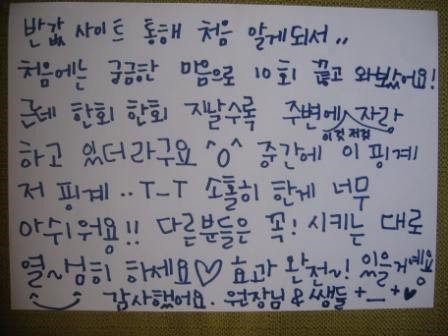 반값 사이트 통해 처음 알게되서..
처음에는 궁금한 마음으로 10회 끊고 와봤어요!
근데 한회 한회 지날수록 주변에 자랑
이것저것
하고 있더라구요 ^o^ 중간에 이 핑계
저 핑계.. T_T 소홀히 한게 너무
아쉬워용!! 다른분들은 꼭! 시키는 대로
열~심히 하세요♡ 효과 완전~! 있을거예요
감사했어요. 원장님 & 쌤들 +_+♥